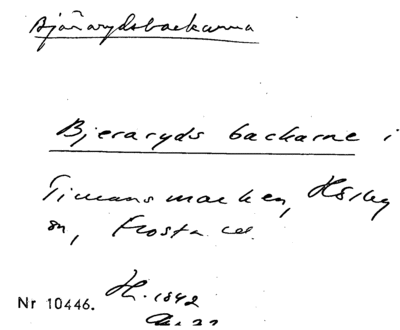 Bjärarydsbackarna
Bjeraryds backarne i
Timans marken, Hörby
sn, Frosta hd.
Nr 10446. Hl. 1842